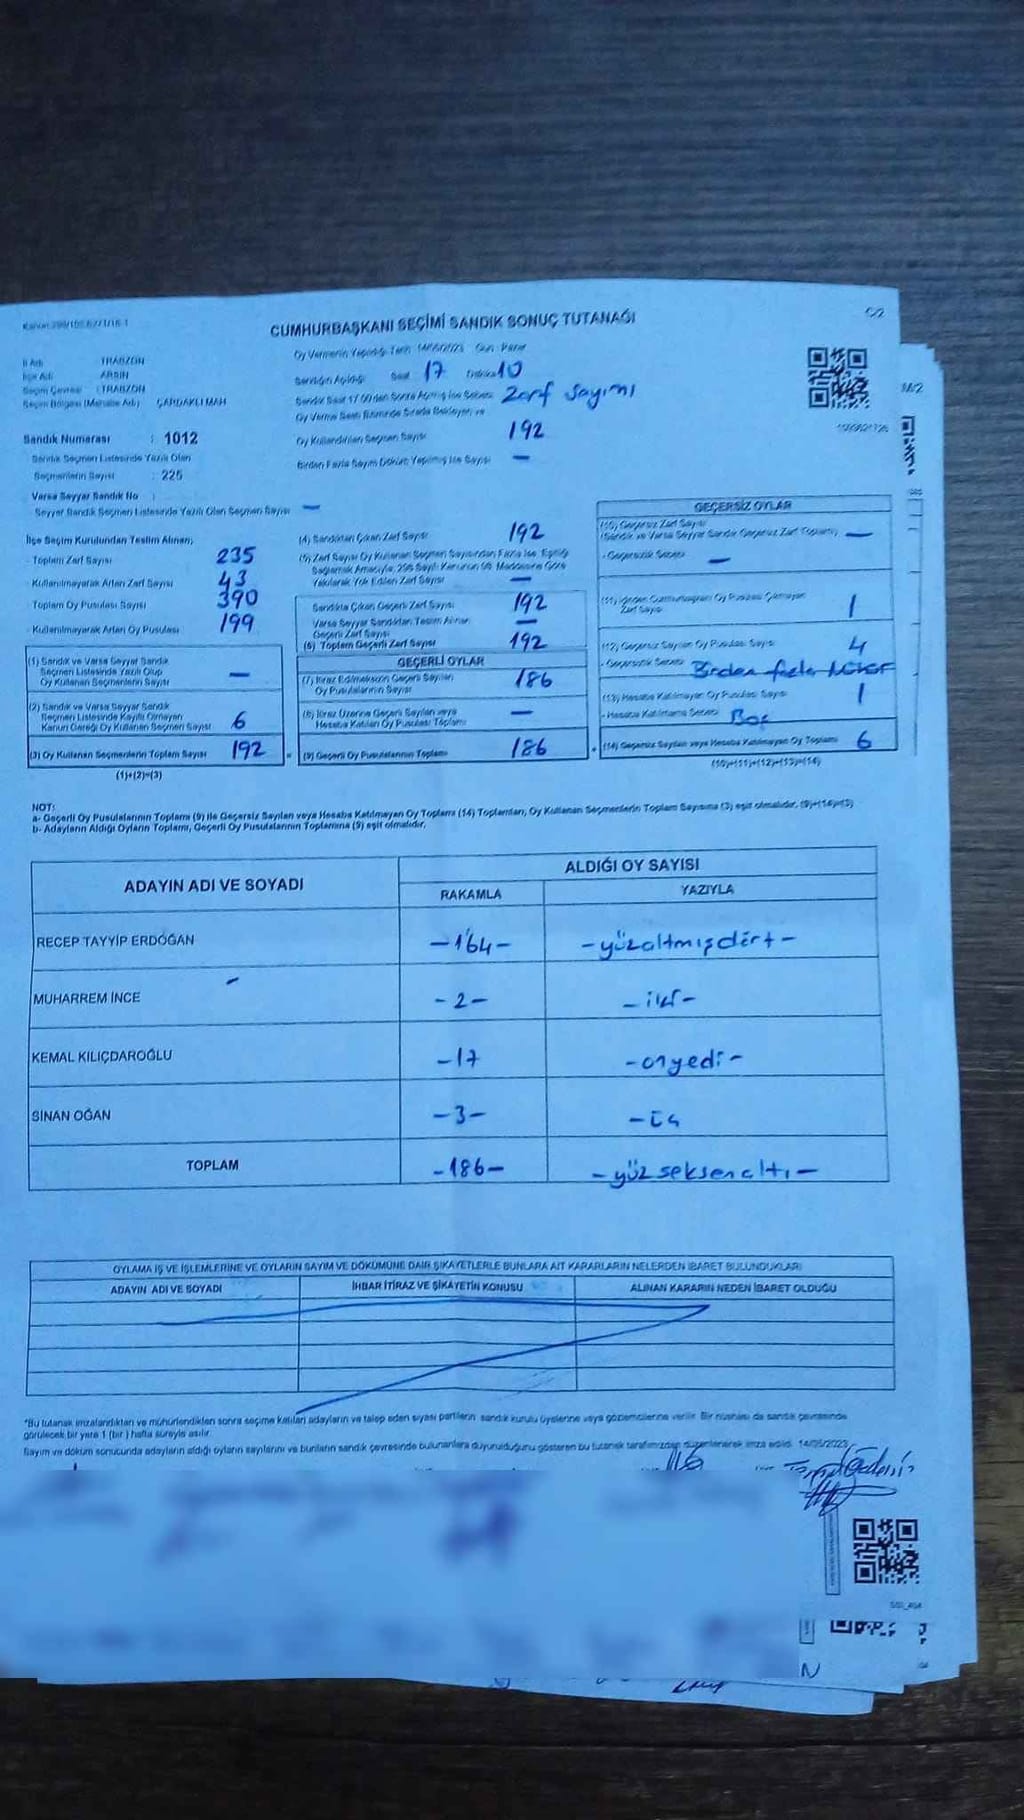 CUMHURBAŞKANI SEÇİMİ SANDIK SONUÇ TUTANAĞI
C/2
İl Adı : TRABZON
İlçe Adı : ARSİN
Seçim Çevresi : TRABZON
Seçim Bölgesi (Mahalle Adı) : ÇARDAKLI MAH
Oy Vermenin Yapıldığı Tarih : 14/05/2023 Gün : Pazar
Sandığın Açıldığı Saat 17 Dakika 10
Sandık Saat 17.00'den Sonra Açılmış İse Sebebi Zarf Sayımı
Oy Verme Saati Bitiminde Sırada Bekleyen ve
Oy Kullandırılan Seçmen Sayısı 192
Birden Fazla Sayım Döküm Yapılmış İse Sayısı —
Sandık Numarası : 1012
Sandık Seçmen Listesinde Yazılı Olan
Seçmenlerin Sayısı : 225
Varsa Seyyar Sandık No :
Seyyar Sandık Seçmen Listesinde Yazılı Olan Seçmen Sayısı —
İlçe Seçim Kurulundan Teslim Alınan;
- Toplam Zarf Sayısı 235
- Kullanılmayarak Artan Zarf Sayısı 43
- Toplam Oy Pusulası Sayısı 390
- Kullanılmayarak Artan Oy Pusulası 199
(1) Sandık ve Varsa Seyyar Sandık
Seçmen Listesinde Yazılı Olup
Oy Kullanan Seçmenlerin Sayısı —
(2) Sandık ve Varsa Seyyar Sandık
Seçmen Listesinde Kayıtlı Olmayan
Kanun Gereği Oy Kullanan Seçmen Sayısı 6
(3) Oy Kullanan Seçmenlerin Toplam Sayısı 192
(1)+(2)=(3)
(4) Sandıktan Çıkan Zarf Sayısı 192
(5) Zarf Sayısı Oy Kullanan Seçmen Sayısından Fazla İse, Eşitliği
Sağlamak Amacıyla, 298 Sayılı Kanunun 98. Maddesine Göre
Yakılarak Yok Edilen Zarf Sayısı —
Sandıkta Çıkan Geçerli Zarf Sayısı 192
Varsa Seyyar Sandıktan Teslim Alınan
Geçerli Zarf Sayısı —
(6) Toplam Geçerli Zarf Sayısı 192
GEÇERLİ OYLAR
(7) İtiraz Edilmeksizin Geçerli Sayılan
Oy Pusulalarının Sayısı 186
(8) İtiraz Üzerine Geçerli Sayılan veya
Hesaba Katılan Oy Pusulası Toplamı —
(9) Geçerli Oy Pusulalarının Toplamı 186
GEÇERSİZ OYLAR
(10) Geçersiz Zarf Sayısı
(Sandık ve Varsa Seyyar Sandık Geçersiz Zarf Toplamı) —
- Geçersizlik Sebebi —
(11) İçinden Cumhurbaşkanı Oy Pusulası Çıkmayan
Zarf Sayısı 1
(12) Geçersiz Sayılan Oy Pusulası Sayısı 4
- Geçersizlik Sebebi Birden fazla Mühür
(13) Hesaba Katılmayan Oy Pusulası Sayısı 1
- Hesaba Katılmama Sebebi Boş
(14) Geçersiz Sayılan veya Hesaba Katılmayan Oy Toplamı 6
(10)+(11)+(12)+(13)=(14)
NOT:
a- Geçerli Oy Pusulalarının Toplamı (9) ile Geçersiz Sayılan veya Hesaba Katılmayan Oy Toplamı (14) Toplamları, Oy Kullanan Seçmenlerin Toplam Sayısına (3) eşit olmalıdır. (9)+(14)=(3)
b- Adayların Aldığı Oyların Toplamı, Geçerli Oy Pusulalarının Toplamına (9) eşit olmalıdır.
ADAYIN ADI VE SOYADI
ALDIĞI OY SAYISI
RAKAMLA YAZIYLA
RECEP TAYYİP ERDOĞAN -164- -yüzaltmışdört-
MUHARREM İNCE -2- -iki-
KEMAL KILIÇDAROĞLU -17 -onyedi-
SİNAN OĞAN -3- -üç
TOPLAM -186- -yüz seksen altı-
OYLAMA İŞ VE İŞLEMLERİNE VE OYLARIN SAYIM VE DÖKÜMÜNE DAİR ŞİKAYETLERLE BUNLARA AİT KARARLARIN NELERDEN İBARET BULUNDUKLARI
ADAYIN ADI VE SOYADI İHBAR İTİRAZ VE ŞİKAYETİN KONUSU ALINAN KARARIN NEDEN İBARET OLDUĞU
*Bu tutanak imzalandıktan ve mühürlendikten sonra seçime katılan adayların ve talep eden siyasi partilerin sandık kurulu üyelerine veya gözlemcilerine verilir. Bir nüshası da sandık çevresinde
görülecek bir yere 1 (bir) hafta süreyle asılır.
Sayım ve döküm sonucunda adayların aldığı oyların sayılarını ve bunların sandık çevresinde bulunanlara duyurulduğunu gösteren bu tutanak tarafımızdan düzenlenerek imza edildi. 14/05/2023